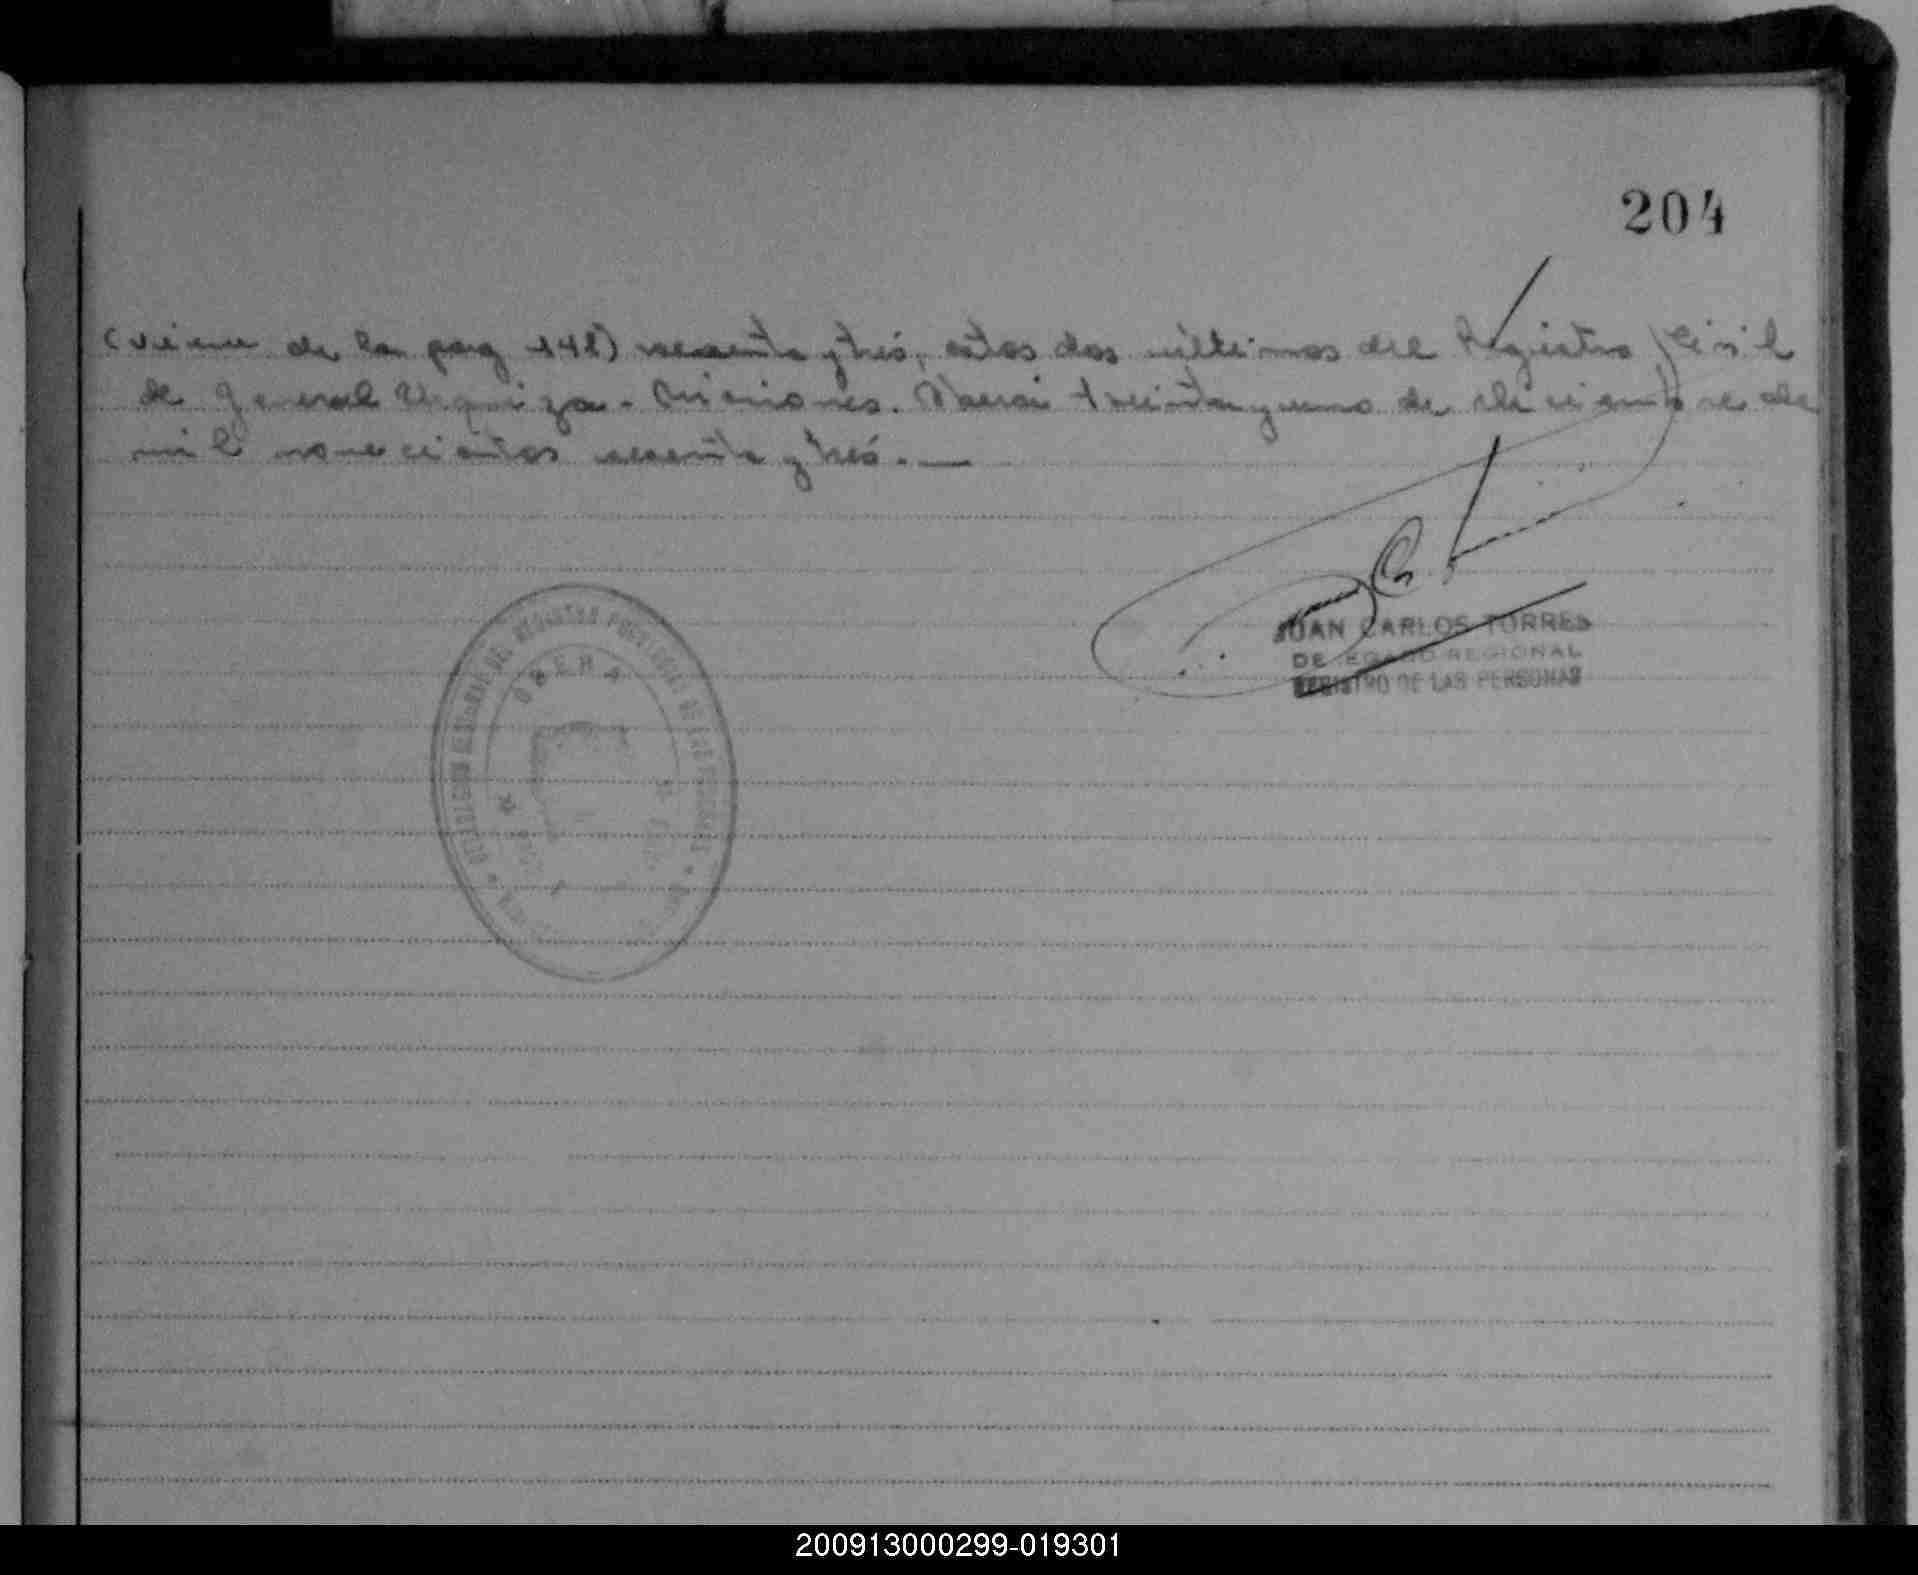 204
(viene de la pag 148) sesenta y tres, estos dos últimos del Registro Civil
de General Urquiza - Misiones. Oberá treinta y uno de diciembre de
mil novecientos sesenta y tres. —
JUAN CARLOS TORRES
DELEGADO REGIONAL
REGISTRO DE LAS PERSONAS
DEL REGISTRO PROVINCIAL DE LAS PERSONAS
OBERA
200913000299-019301